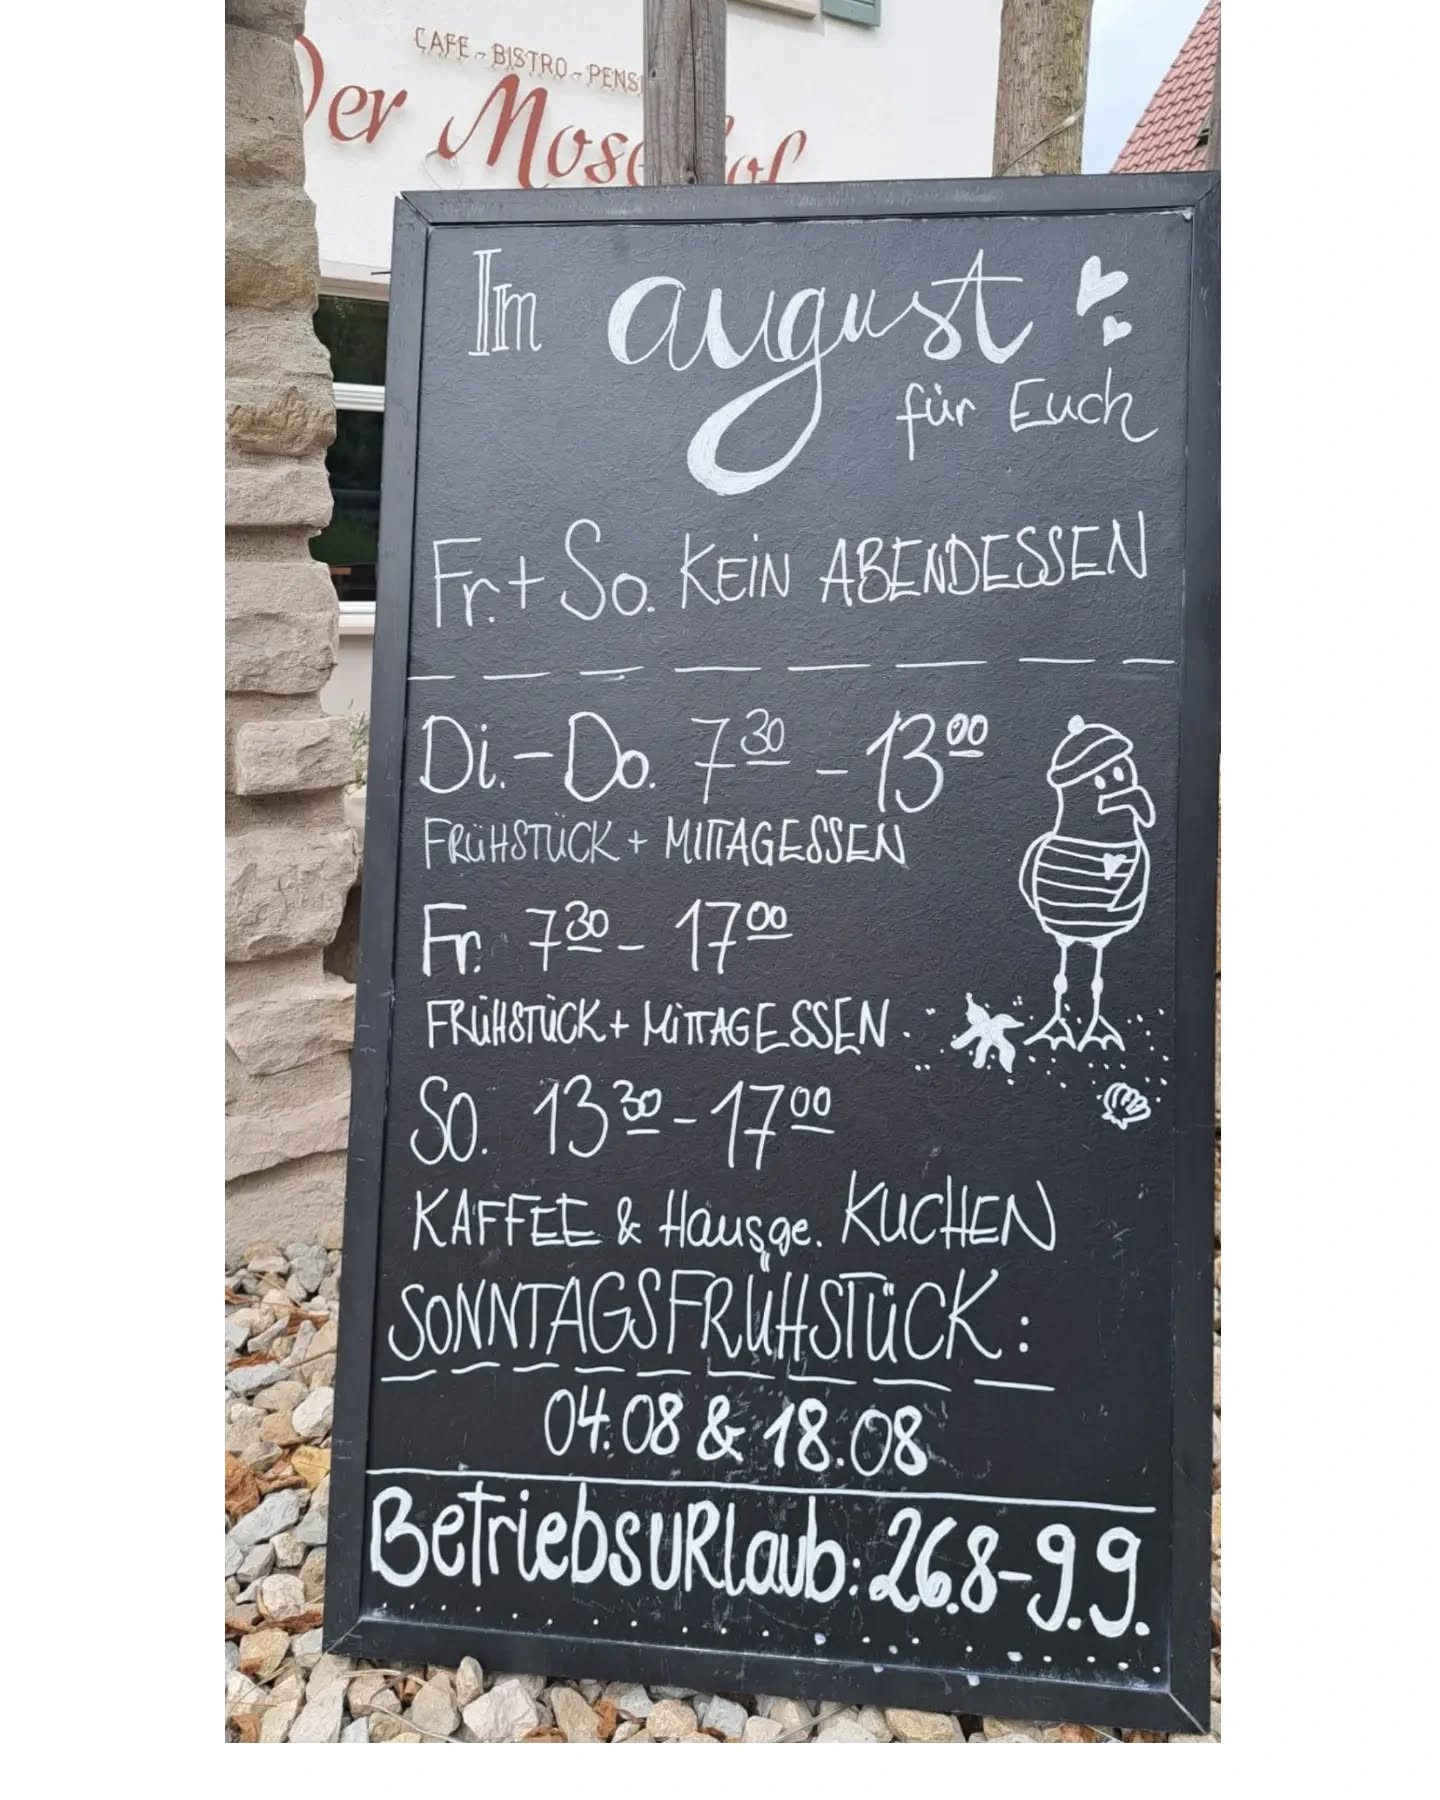 CAFE - BISTRO - PENS
Der Mose hof
Im august
für Euch
Fr. + So. KEIN ABENDESSEN
Di. - Do. 7 30 - 13 00
FRÜHSTÜCK + MITTAGESSEN
Fr. 7 30 - 17 00
FRÜHSTÜCK + MITTAGESSEN
So. 13 30 - 17 00
KAFFEE & Hausge. KUCHEN
SONNTAGSFRÜHSTÜCK:
04.08 & 18.08
Betriebsurlaub: 26.8 - 9.9.